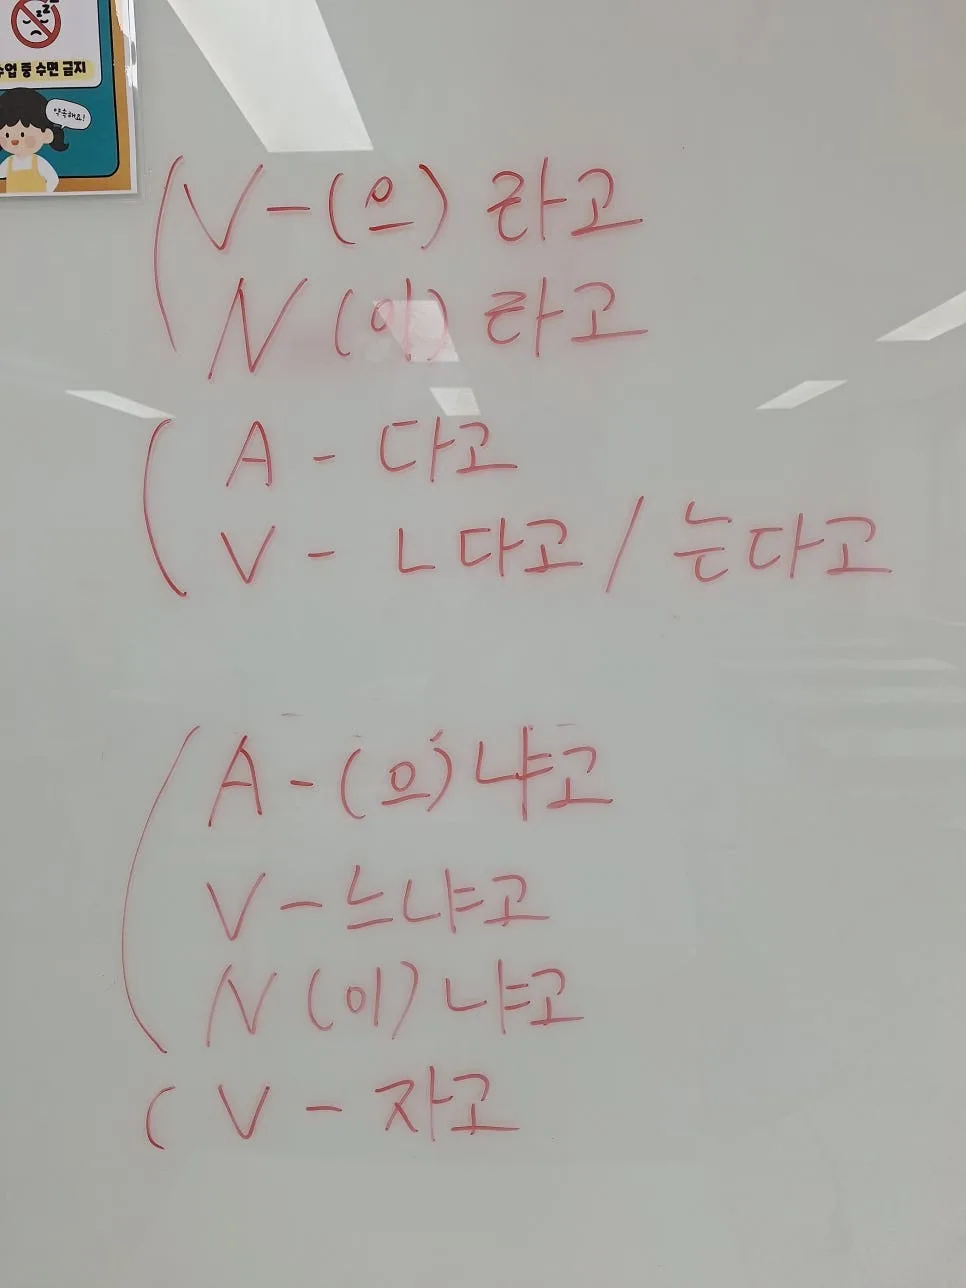 수업 중 수면 금지
약속해요!
( V - (으) 라고
N (이) 라고
( A - 다고
V - ㄴ다고 / 는다고
( A - (으) 냐고
V - 느냐고
N (이) 냐고
( V - 자고